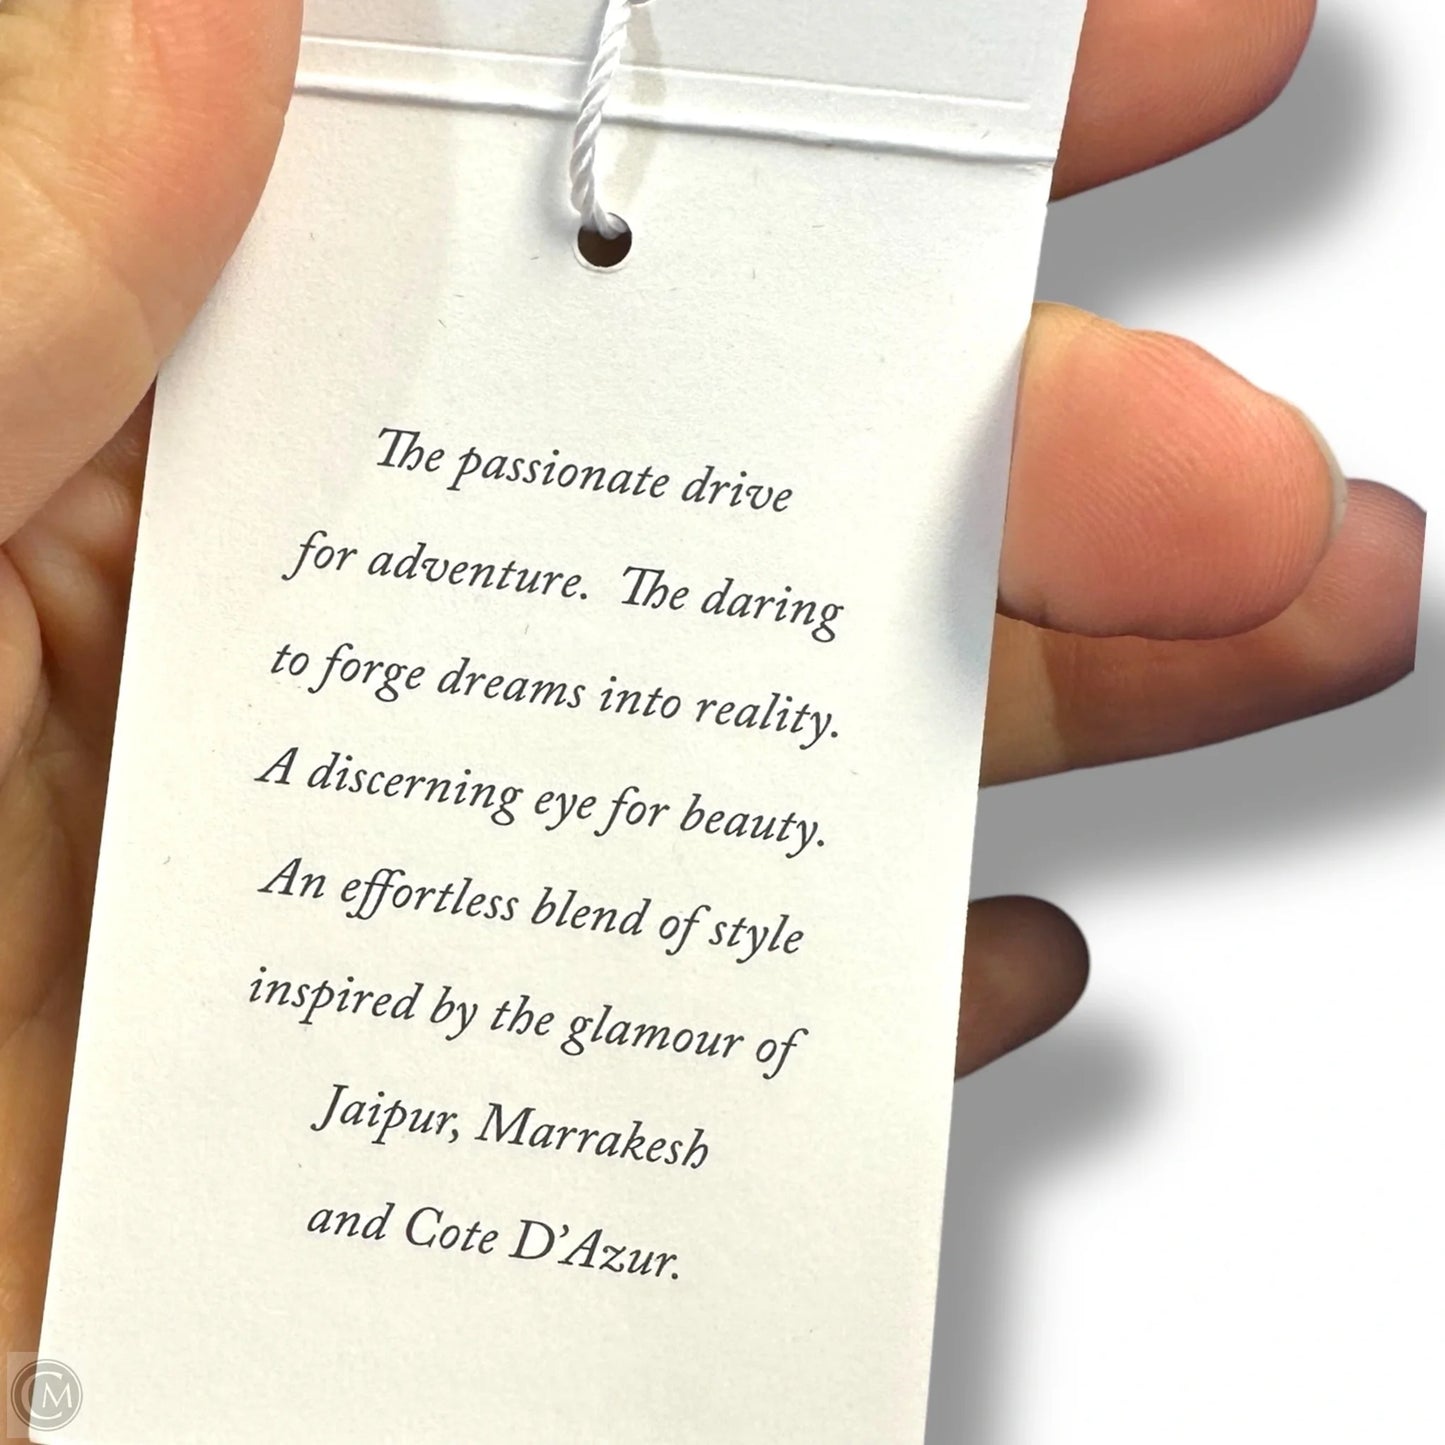 The passionate drive
for adventure. The daring
to forge dreams into reality.
A discerning eye for beauty.
An effortless blend of style
inspired by the glamour of
Jaipur, Marrakesh
and Cote D’Azur.
CM